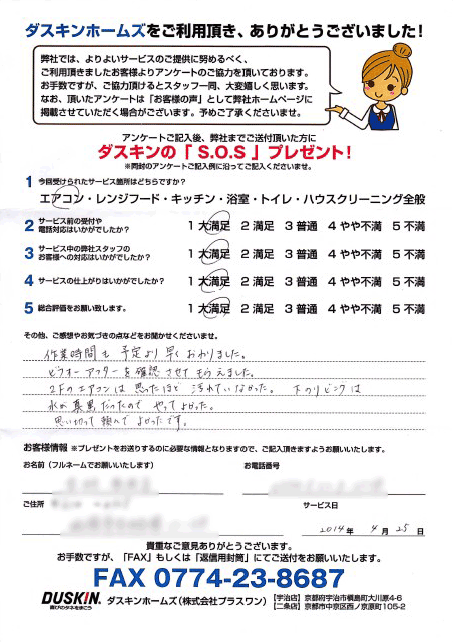 ダスキンホームズをご利用頂き、ありがとうございました！
弊社では、よりよいサービスのご提供に努めるべく、
ご利用頂きましたお客様よりアンケートのご協力を頂いております。
お手数ですが、ご協力頂けるとスタッフ一同、大変嬉しく思います。
なお、頂いたアンケートは「お客様の声」として弊社ホームページに
掲載させていただく場合がございます。予めご了承くださいませ。
アンケートご記入後、弊社までご送付頂いた方に
ダスキンの「 S.O.S 」プレゼント！
※同封のアンケートご記入例に沿ってご記入くださいませ。
1 今回受けられたサービス箇所はどちらですか？
エアコン・レンジフード・キッチン・浴室・トイレ・ハウスクリーニング全般
2 サービス前の受付や
電話対応はいかがでしたか？ 1 大満足 2 満足 3 普通 4 やや不満 5 不満
3 サービス中の弊社スタッフの
お客様への対応はいかがでしたか？ 1 大満足 2 満足 3 普通 4 やや不満 5 不満
4 サービスの仕上がりはいかがでしたか？ 1 大満足 2 満足 3 普通 4 やや不満 5 不満
5 総合評価をお願い致します。 1 大満足 2 満足 3 普通 4 やや不満 5 不満
その他、ご感想やお気づきの点などをお聞かせくださいませ。
作業時間も予定より早くおわりました。
ビフォーアフターを確認させてもらえました。
2Fのエアコンは思ったほど汚れていなかった。下のリビングは
水が真黒だったのでやってよかった。
思い切って頼んでよかったです。
お客様情報 ※プレゼントをお送りするのに必要な情報となりますので、ご記入頂きますようお願いいたします。
お名前（フルネームでお願いいたします） お電話番号
ご住所 サービス日
2014年 4月 25日
貴重なご意見ありがとうございます。
お手数ですが、「FAX」もしくは「返信用封筒」にてご送付をお願いいたします。
FAX 0774-23-8687
DUSKIN 喜びのタネをまこう ダスキンホームズ（株式会社プラスワン） 【宇治店】京都府宇治市槇島町大川原4-6
【二条店】京都市中京区西ノ京原町105-2